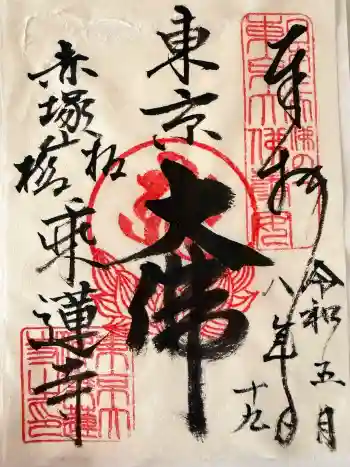 奉拝
令和
八年
五月
十九日
東京
大佛
赤塚
板橋
乗蓮寺